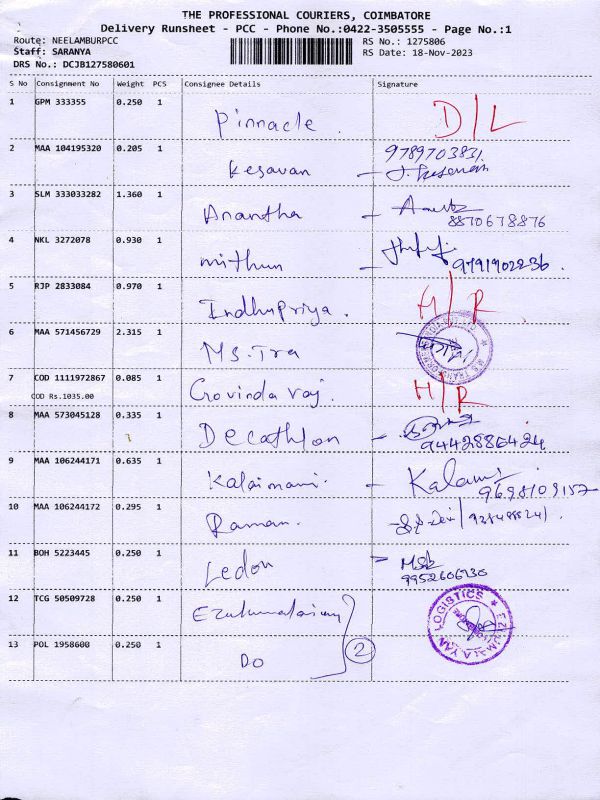 THE PROFESSIONAL COURIERS, COIMBATORE
Delivery Runsheet - PCC - Phone No.:0422-3505555 - Page No.:1
Route: NEELAMBURPCC RS No.: 1275806
Staff: SARANYA RS Date: 18-Nov-2023
DRS No.: DCJB127580601
S No Consignment No Weight PCS Consignee Details Signature
1 GPM 333355 0.250 1 Pinnacle. D/L
2 MAA 104195320 0.205 1 Kesavan - 9789703831
3 SLM 333033282 1.360 1 Anantha - 8870678876
4 NKL 3272078 0.930 1 mithun - 9791902236.
5 RJP 2833084 0.970 1 Indhupriya. H/R
6 MAA 571456729 2.315 1 Ms. Tra
7 COD 1111972867 0.085 1 Govindaraj. H/R
COD Rs.1035.00
8 MAA 573045128 0.335 1 Decathlon - 9442886424
9 MAA 106244171 0.635 1 Kalaimani. - Kalaimani
9698109157
10 MAA 106244172 0.295 1 Raman.
11 BOH 5223445 0.250 1 Ledon -
9952606930
12 TCG 50509728 0.250 1 Ezhumalaiyan
EZHUMALAYAN LOGISTICS
13 POL 1958600 0.250 1 DO 2